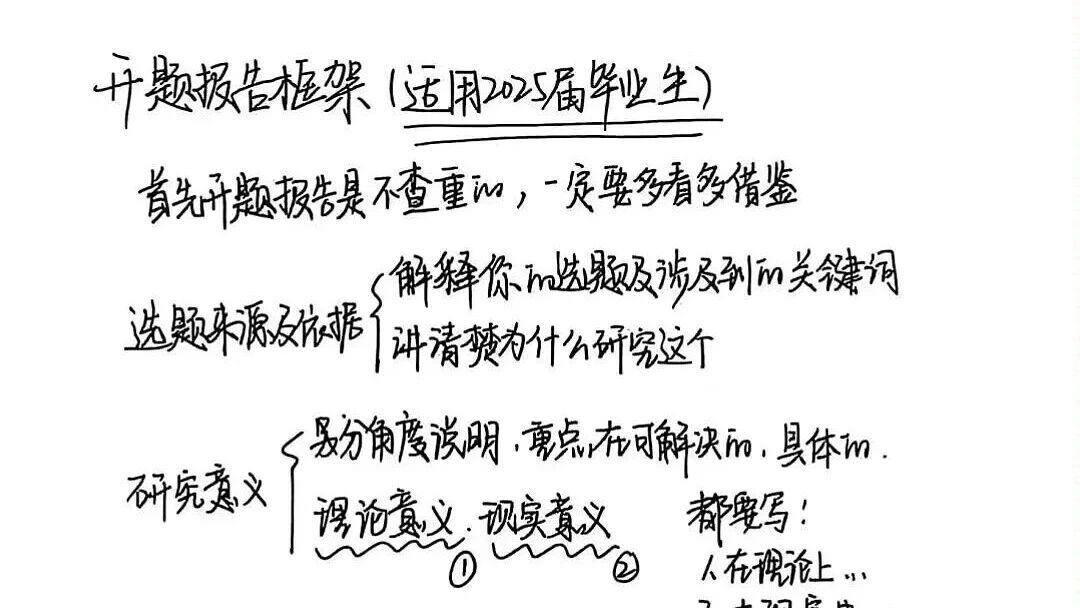 开题报告框架(适用2025届毕业生)
首先开题报告是不查重的,一定要多看多借鉴
选题来源及依据
解释你的选题及涉及到的关键词
讲清楚为什么研究这个
研究意义
另分角度说明,重点在可解决的,具体的.
理论意义.现实意义
① ②
都要写!
1.在理论上...